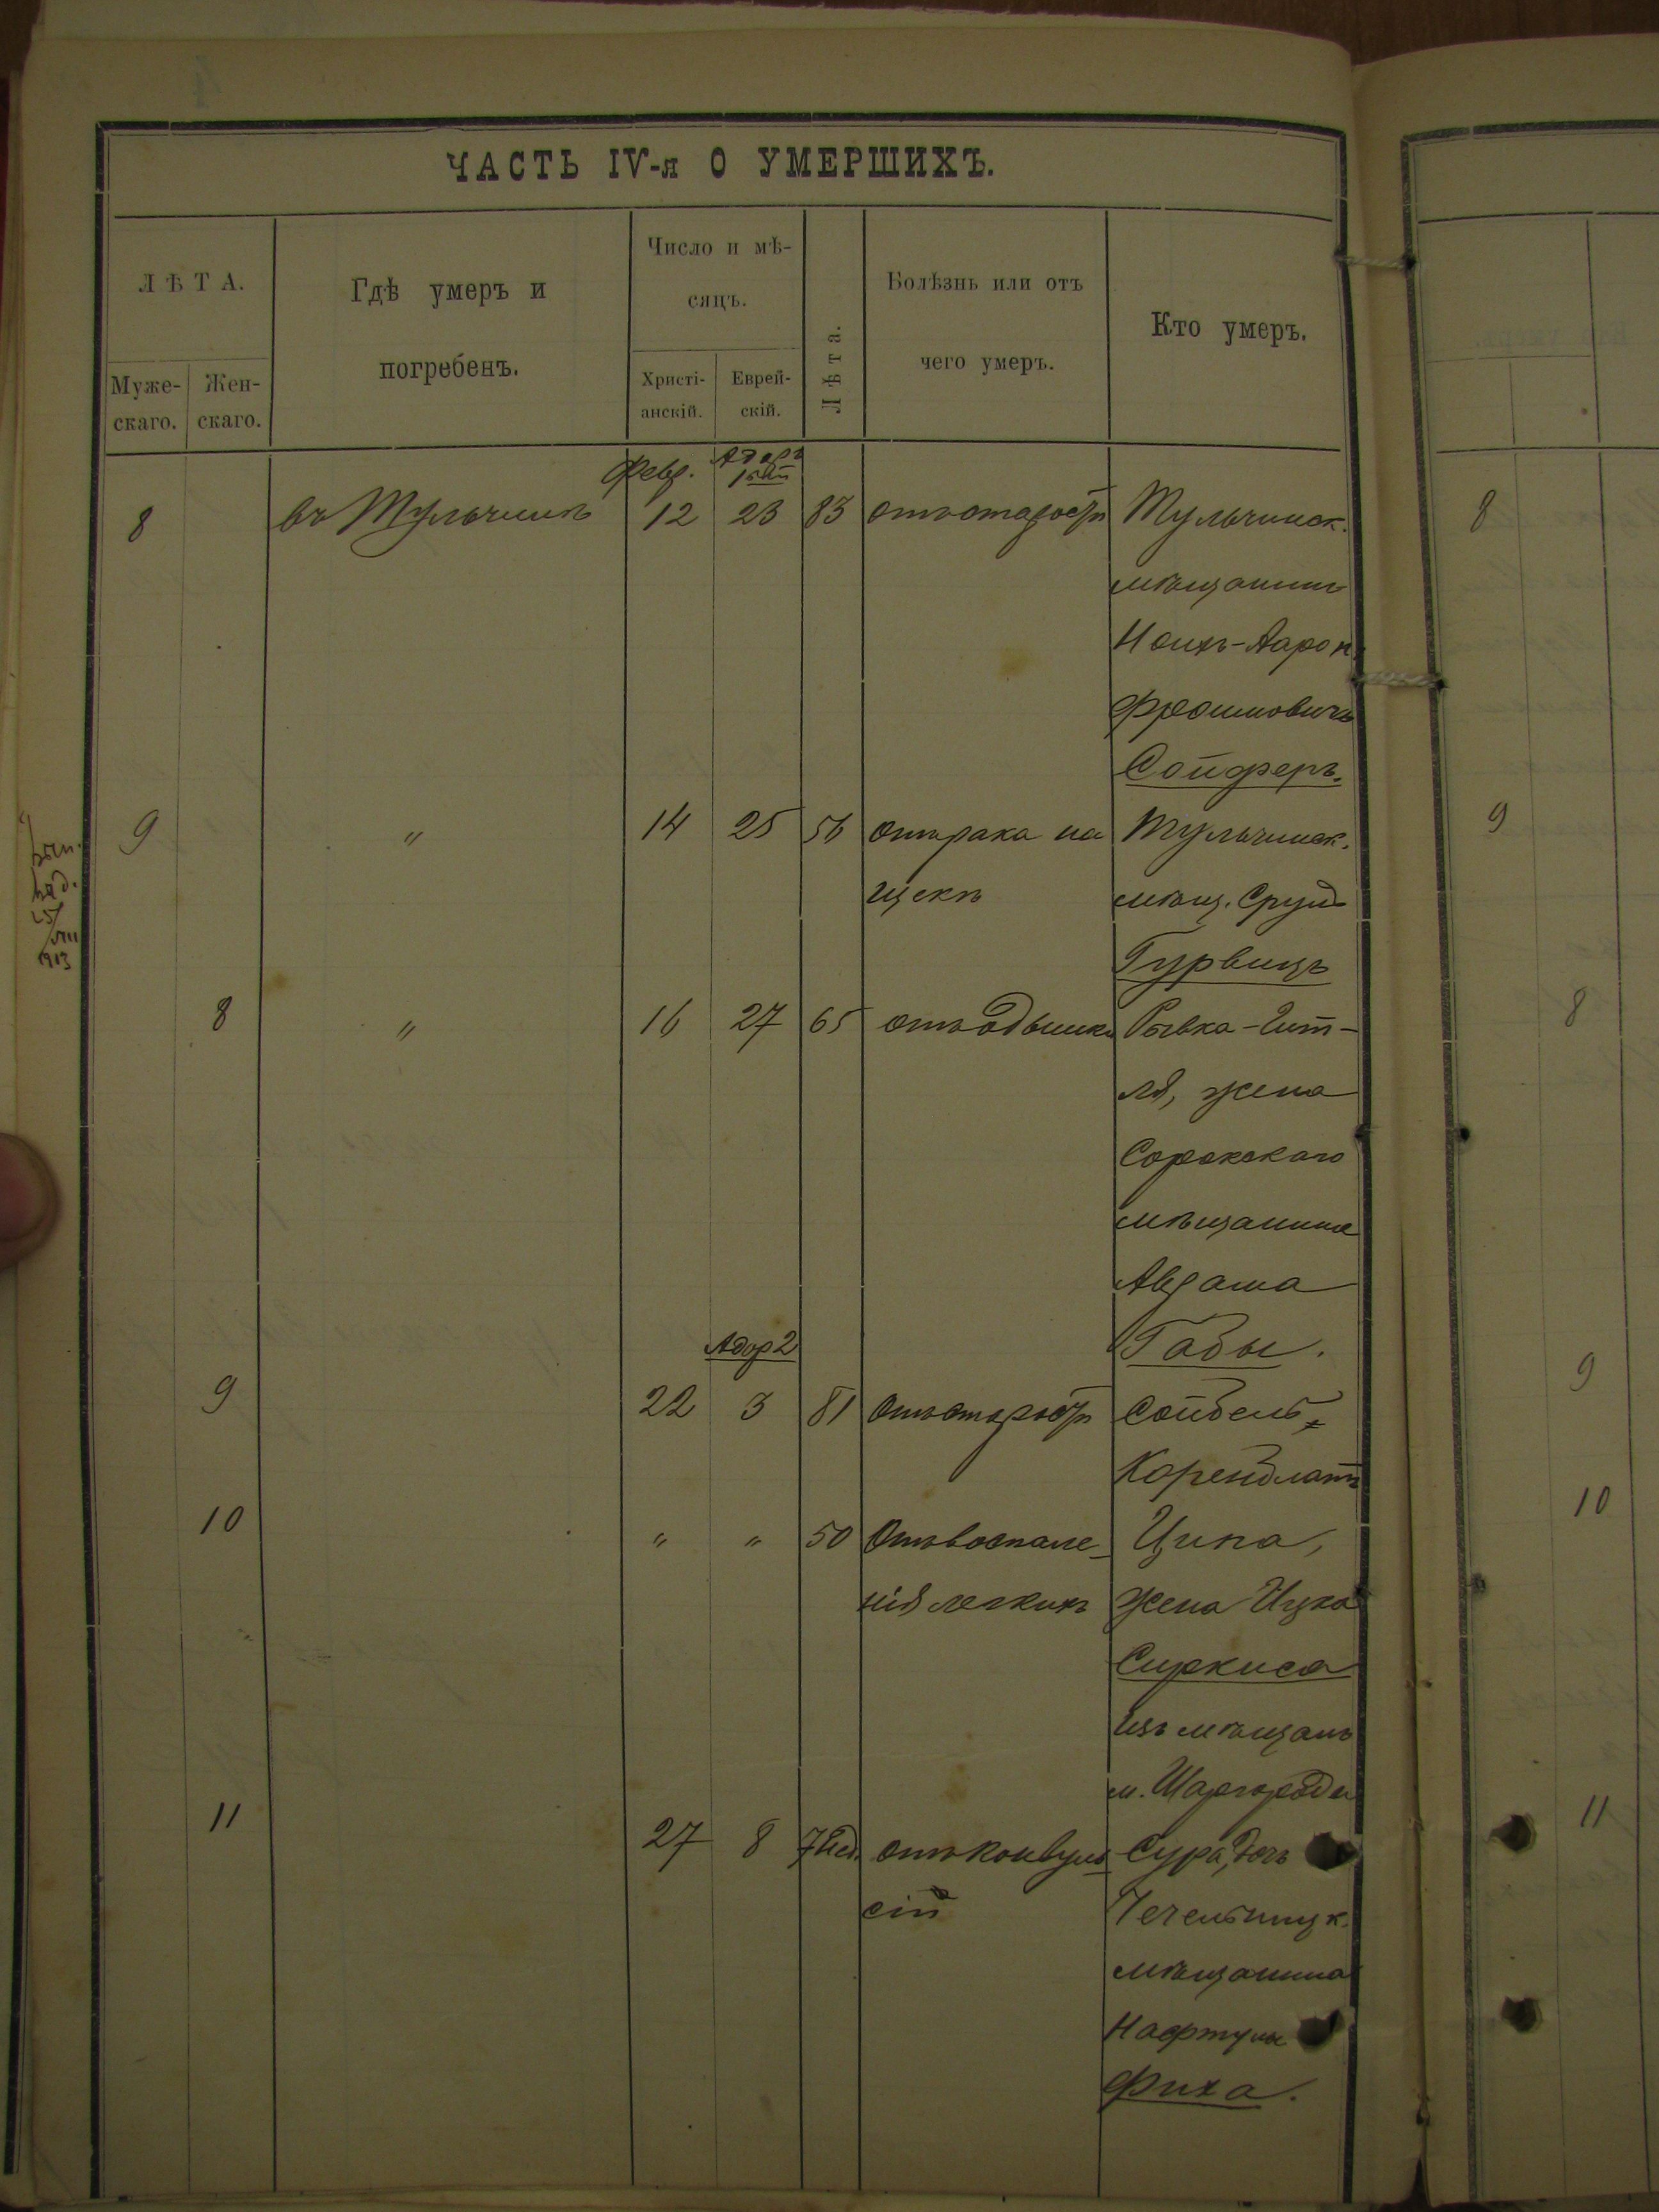 ЧАСТЬ IV-я О УМЕРШИХЪ.
ЛѢТА.
Муже-
скаго.
Жен-
скаго.
Гдѣ умеръ и
погребенъ.
Число и мѣ-
сяцъ.
Христі-
анскій.
Еврей-
скій.
Лѣта.
Болѣзнь или отъ
чего умеръ.
Кто умеръ.
Февр. Адаръ
8 въ Тульчинѣ 12 23 83 отъ старости Тульчинск.
мѣщанинъ
Ноихъ-Аарон
Фроимовичъ
Сойферъ.
9 " 14 25 56 отъ рака на Тульчинск.
щекѣ мѣщ. Сруль
Гурвицъ
8 " 16 27 65 отъ одышки Рывка-Гит-
ля, жена
Сорокскаго
мѣщанина
Аврама
Габы.
Адар 2
9 22 3 81 отъ старости Сойбель
Коренблатъ
10 " " 50 Отъ воспале-
нія легкихъ
Ципа,
жена Ицка
Сиркиса
изъ мѣщанъ
м. Шаргорода
11 27 8 7 нед. отъ конвуль-
сій
Сура, дочь
Чечельницк.
мѣщанина
Нафтулы
Фиха.
8
9
8
9
10
11
1913